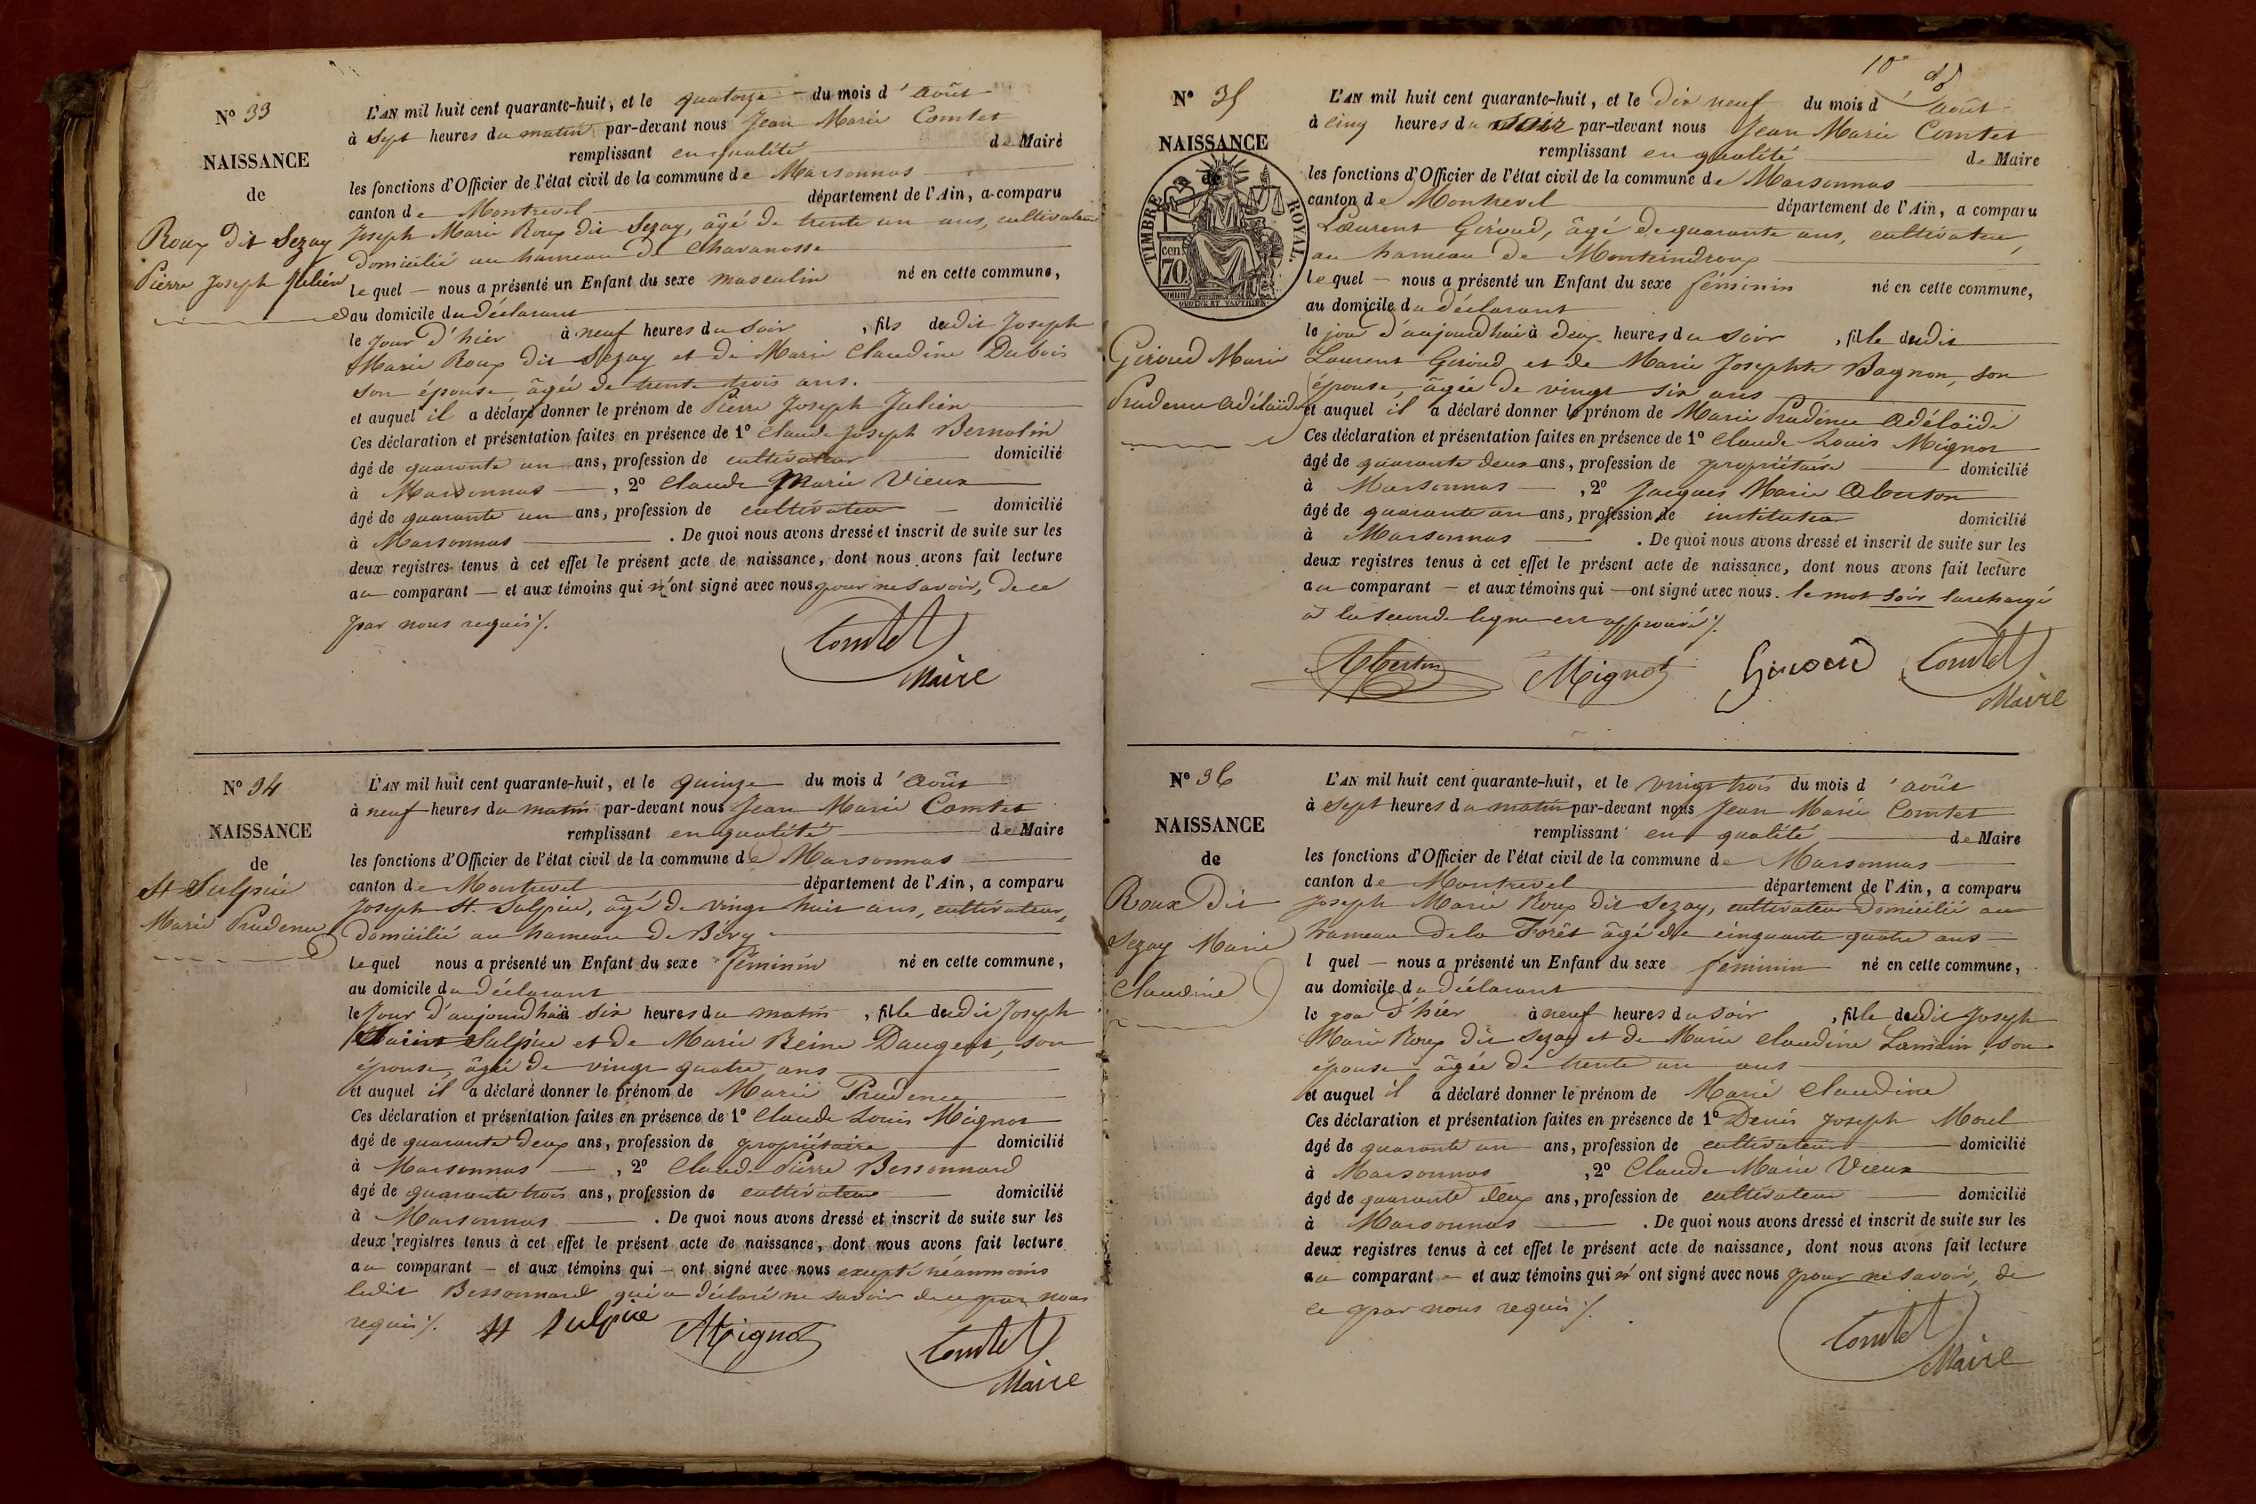 N° 33
NAISSANCE
de
Roux dit Sezay
Pierre Joseph Julien
L'AN mil huit cent quarante-huit, et le quatorze du mois d'août
à sept heures du matin par-devant nous Jean Marie Comtet
remplissant en qualité de Maire
les fonctions d'Officier de l'état civil de la commune de Marsonnas
canton de Montrevel département de l'Ain, a comparu
Joseph Marie Roux dit Sezay, âgé de trente un ans, cultivateur
domicilié au hameau de Chavanosse
lequel — nous a présenté un Enfant du sexe masculin né en cette commune,
au domicile du déclarant
le jour d'hier à neuf heures du soir, fils dudit Joseph
Marie Roux dit Sezay et de Marie Claudine Dubois
son épouse âgée de trente trois ans.
et auquel il a déclaré donner le prénom de Pierre Joseph Julien
Ces déclaration et présentation faites en présence de 1° Claude Joseph Bernolin
âgé de quarante un ans, profession de cultivateur domicilié
à Marsonnas — , 2° Claude Marie Vieux
âgé de quarante un ans, profession de cultivateur — domicilié
à Marsonnas . De quoi nous avons dressé et inscrit de suite sur les
deux registres tenus à cet effet le présent acte de naissance, dont nous avons fait lecture
au comparant — et aux témoins qui n'ont signé avec nous pour ne savoir, de ce
par nous requis ./.
Comtet
Maire
N° 34
NAISSANCE
de
St Sulpice
Marie Prudence
L'AN mil huit cent quarante-huit, et le quinze du mois d'août
à neuf heures du matin par-devant nous Jean Marie Comtet
remplissant en qualité de Maire
les fonctions d'Officier de l'état civil de la commune de Marsonnas
canton de Montrevel département de l'Ain, a comparu
Joseph St. Sulpice, âgé de vingt huit ans, cultivateur,
domicilié au hameau de Béry
lequel nous a présenté un Enfant du sexe féminin né en cette commune,
au domicile du déclarant
le jour d'aujourd'hui à six heures du matin, fille dudit Joseph
Saint Sulpice et de Marie Reine Daugent, son
épouse, âgée de vingt quatre ans
et auquel il a déclaré donner le prénom de Marie Prudence
Ces déclaration et présentation faites en présence de 1° Claude Louis Mignot
âgé de quarante deux ans, profession de propriétaire domicilié
à Marsonnas — , 2° Claude Pierre Bessonnard
âgé de quarante trois ans, profession de cultivateur domicilié
à Marsonnas . De quoi nous avons dressé et inscrit de suite sur les
deux registres tenus à cet effet le présent acte de naissance, dont nous avons fait lecture
au comparant — et aux témoins qui — ont signé avec nous excepté néanmoins
ledit Bessonnard qui a déclaré ne savoir de ce par nous
requis ./. St Sulpice Mignot
Comtet
Maire
10e
N° 35
NAISSANCE
de
TIMBRE ROYAL
70 cen
Giroud Marie
Prudence Adélaïde
L'AN mil huit cent quarante-huit, et le dix neuf du mois d'août
à cinq heures du soir par-devant nous Jean Marie Comtet
remplissant en qualité de Maire
les fonctions d'Officier de l'état civil de la commune de Marsonnas
canton de Montrevel département de l'Ain, a comparu
Laurent Giroud, âgé de quarante ans, cultivateur,
au hameau de Monteindroux
lequel — nous a présenté un Enfant du sexe féminin né en cette commune,
au domicile du déclarant
le jour d'aujourd'hui à deux heures du soir, fille dudit
Laurent Giroud et de Marie Josephte Bagnon, son
épouse, âgée de vingt six ans
et auquel il a déclaré donner le prénom de Marie Prudence Adélaïde
Ces déclaration et présentation faites en présence de 1° Claude Louis Mignot
âgé de quarante deux ans, profession de propriétaire domicilié
à Marsonnas — , 2° Jacques Marie Oberton
âgé de quarante un ans, profession de instituteur domicilié
à Marsonnas . De quoi nous avons dressé et inscrit de suite sur les
deux registres tenus à cet effet le présent acte de naissance, dont nous avons fait lecture
au comparant — et aux témoins qui — ont signé avec nous. le mot soir surchargé
à la seconde ligne est approuvé ./.
Oberton Mignot Giroud Comtet
Maire
N° 36
NAISSANCE
de
Roux Dit
Sezay Marie
Claudine
L'AN mil huit cent quarante-huit, et le vingt trois du mois d'août
à sept heures du matin par-devant nous Jean Marie Comtet
remplissant en qualité de Maire
les fonctions d'Officier de l'état civil de la commune de Marsonnas
canton de Montrevel département de l'Ain, a comparu
Joseph Marie Roux dit Sezay, cultivateur domicilié au
hameau de la Forêt âgé de cinquante quatre ans
l quel — nous a présenté un Enfant du sexe féminin né en cette commune,
au domicile du déclarant
le jour d'hier à neuf heures du soir, fille dudit Joseph
Marie Roux dit Sezay et de Marie Claudine Lamain, son
épouse âgée de trente un ans
et auquel il a déclaré donner le prénom de Marie Claudine
Ces déclaration et présentation faites en présence de 1° Denis Joseph Morel
âgé de quarante un ans, profession de cultivateur domicilié
à Marsonnas , 2° Claude Marie Vieux
âgé de quarante deux ans, profession de cultivateur domicilié
à Marsonnas . De quoi nous avons dressé et inscrit de suite sur les
deux registres tenus à cet effet le présent acte de naissance, dont nous avons fait lecture
au comparant — et aux témoins qui n'ont signé avec nous pour ne savoir, de
ce par nous requis ./.
Comtet
Maire